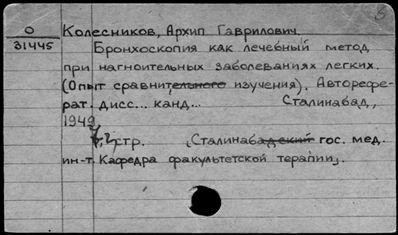 О
31445
Колесников, Архип Гаврилович.
Бронхоскопия как лечебный метод
при нагноительных заболеваниях легких.
(Опыт сравнительного изучения). Авторефе-
рат. дисс... канд... Сталинабад,
1949
стр. (Сталинабадский гос. мед.
ин-т. Кафедра факультетской терапии).